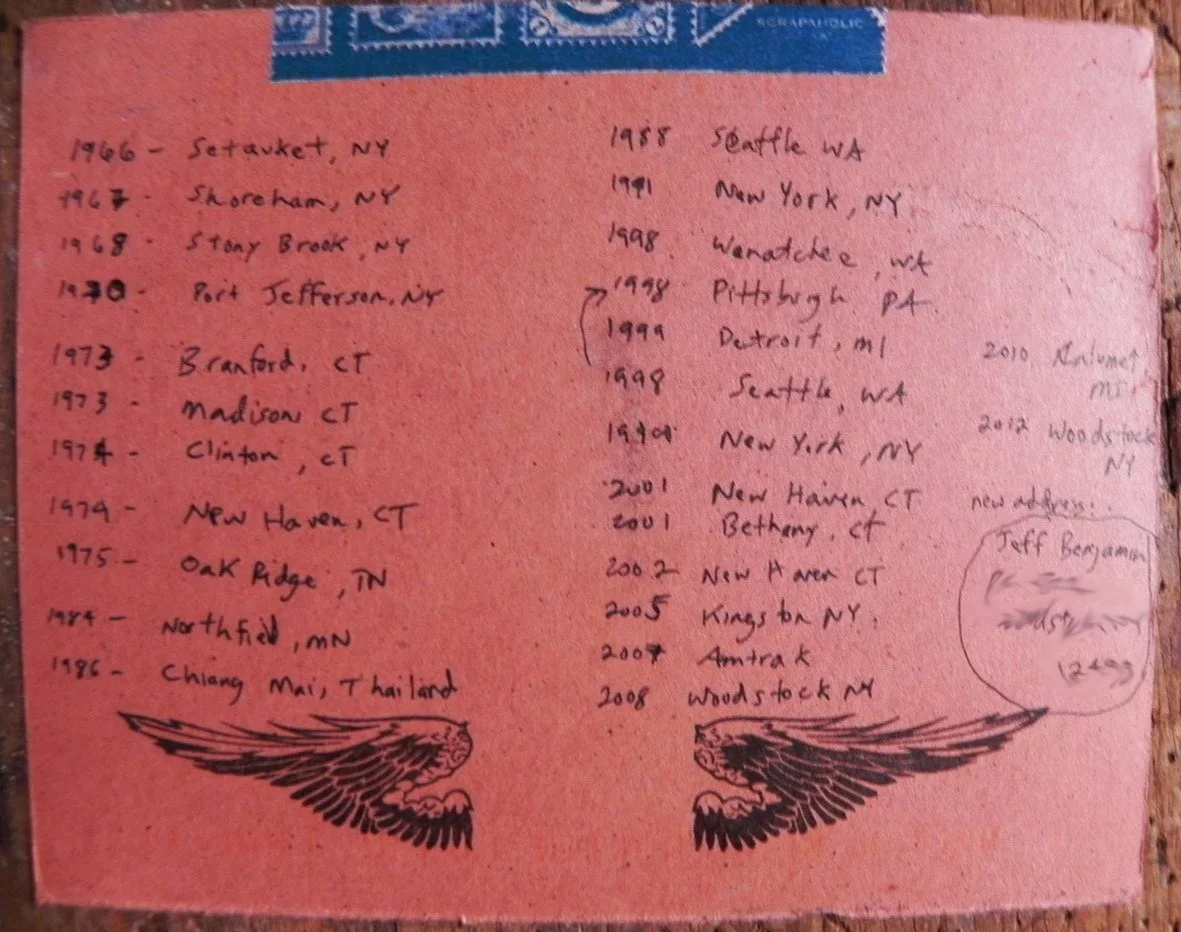 SCRAPAHOLIC
1966 - Setauket, NY
1967 - Shoreham, NY
1968 - Stony Brook, NY
1970 - Port Jefferson, NY
1973 - Branford, CT
1973 - Madison CT
1974 - Clinton, CT
1974 - New Haven, CT
1975 - Oak Ridge, TN
1984 - Northfield, MN
1986 - Chiang Mai, Thailand
1988 Seattle WA
1991 New York, NY
1998 Wenatchee, WA
1998 Pittsburgh PA
1999 Detroit, MI
1998 Seattle, WA
New York, NY
2001 New Haven, CT
2001 Bethany, CT
2002 New Haven CT
2005 Kingston NY.
2007 Amtrak
2008 Woodstock NY
2010 Calumet,
MI.
2012 Woodstock
NY
new address:
Jeff Benjamin
12498